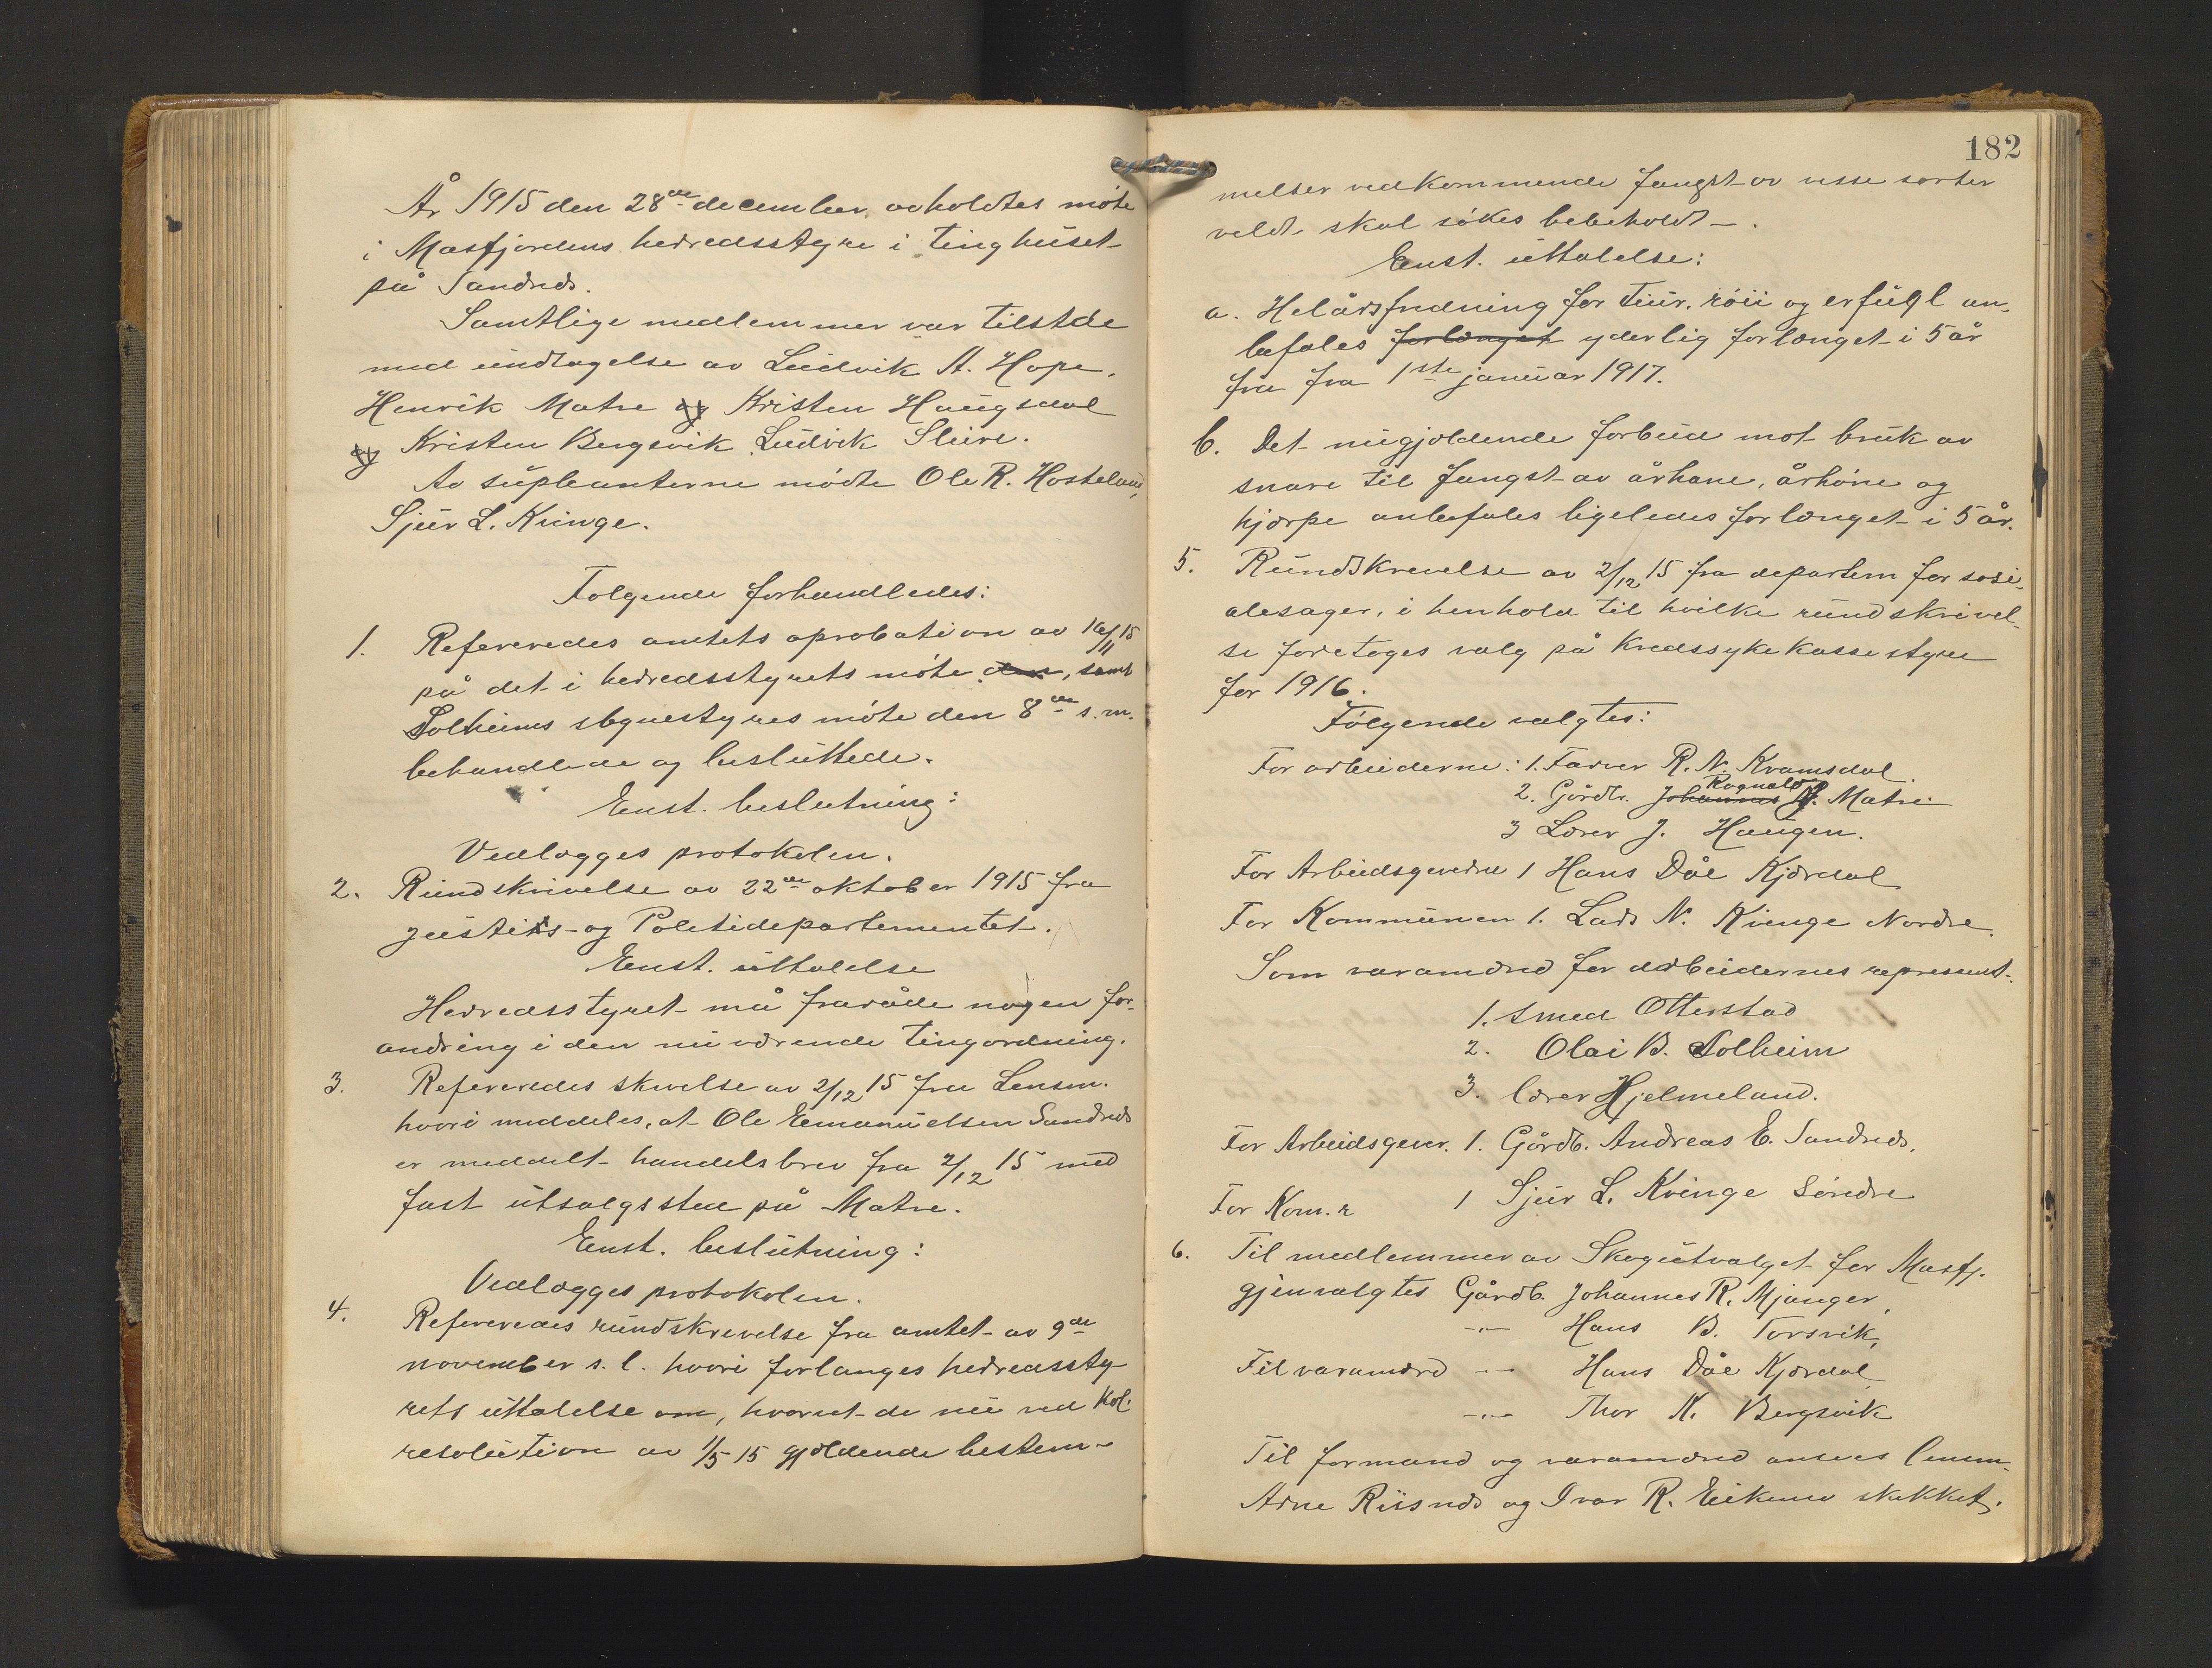 År 1915 den 28de december avholdtes møte
i Masfjordens herredsstyre i tinghuset
på Sandnæs.
Samtlige medlemmer var tilstæde
med undtagelse av Ludvik A. Hope,
Henrik Matre og Kristen Haugsdal
og Kristen Bergsvik Ludvik Sleire.
Av supleanterne mødte Ole R. Hosteland,
Sjur L. Kvinge.
Følgende forhandledes:
1. Refereredes amtets aprobation av 16/11 15
på det i herredsstyrets møte den, samt
Solheims sognestyres møte den 8de s.m.
behandlede og besluttede.
Enst. beslutning:
Vedlægges protokolen.
2. Rundskrivelse av 22de oktober 1915 fra
justits- og Politidepartementet.
Enst. uttalelse
Herredsstyret må fraråde nogen for-
andring i den nuværende tingordning.
3. Refereredes skrivelse av 2/12 15 fra Lensm.
hvori meddeles, at Ole Emanuelsen Sandnæs
er meddelt handelsbrev fra 2/12 15 med
fast utsalgssted på Matre.
Enst. beslutning:
Vedlægges protokolen.
4. Refereredes rundskrivelse fra amtet av 9de
november s. l. hvori forlanges herredssty-
rets uttalelse om, hvorvet de nu ved kgl.
resolution av 1/5 15 gjældende bestem-
182
melser vedkommende fangst av visse sorter
veldt skal søkes bebeholdt -.
Enst. uttalelse:
a. Helårsfredning for tiur, røii og erfugl an-
befales forlænget yderlig forlænget i 5 år
fra fra 1ste januar 1917.
b. Det nugjældende forbud mot bruk av
snare til fangst av århane, århøne og
hjærpe anbefales ligeledes forlænget i 5 år.
5. Rundskrivelse av 2/12 15 fra departem for sosi-
alesager, i henhold til hvilke rundskrivel-
se foretoges valg på Kredssykekassestyre
for 1916.
Følgende valgtes:
For arbeiderne: 1. Farver R. N. Kvamsdal.
Rognald
2. Gårdbr. Johannes A. Matre
3 Lærer J. Haugen.
For Arbeidsgiverne 1 Hans Dåe Kjærdal
For Kommunen 1. Lars N. Kvinge Nordre.
Som varamænd for arbeidernes represent.
1. Smed Otterstad
2. Olai B. Solheim
3. Lærer Hjelmeland.
For Arbeidsgiver. 1. Gårdb. Andreas E. Sandnæs.
For Kom. r 1 Sjur L. Kvinge Søndre
6. Til medlemmer av Skogutvalget for Masfj.
gjenvalgtes Gårdb. Johannes R. Mjanger,
-"- Hans B. Torsvik,
Til varamænd -"- Hans Dåe Kjærdal
-"- Thor K. Bergsvik
Til formand og varamænd ansees lensm.
Arne Riisnæs og Ivar R. Eikemo skikket.